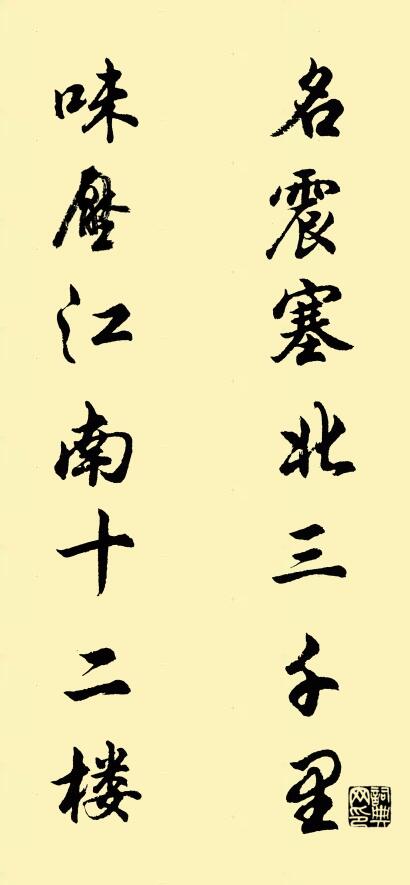 名震塞北三千里
味壓江南十二楼
詞典网印